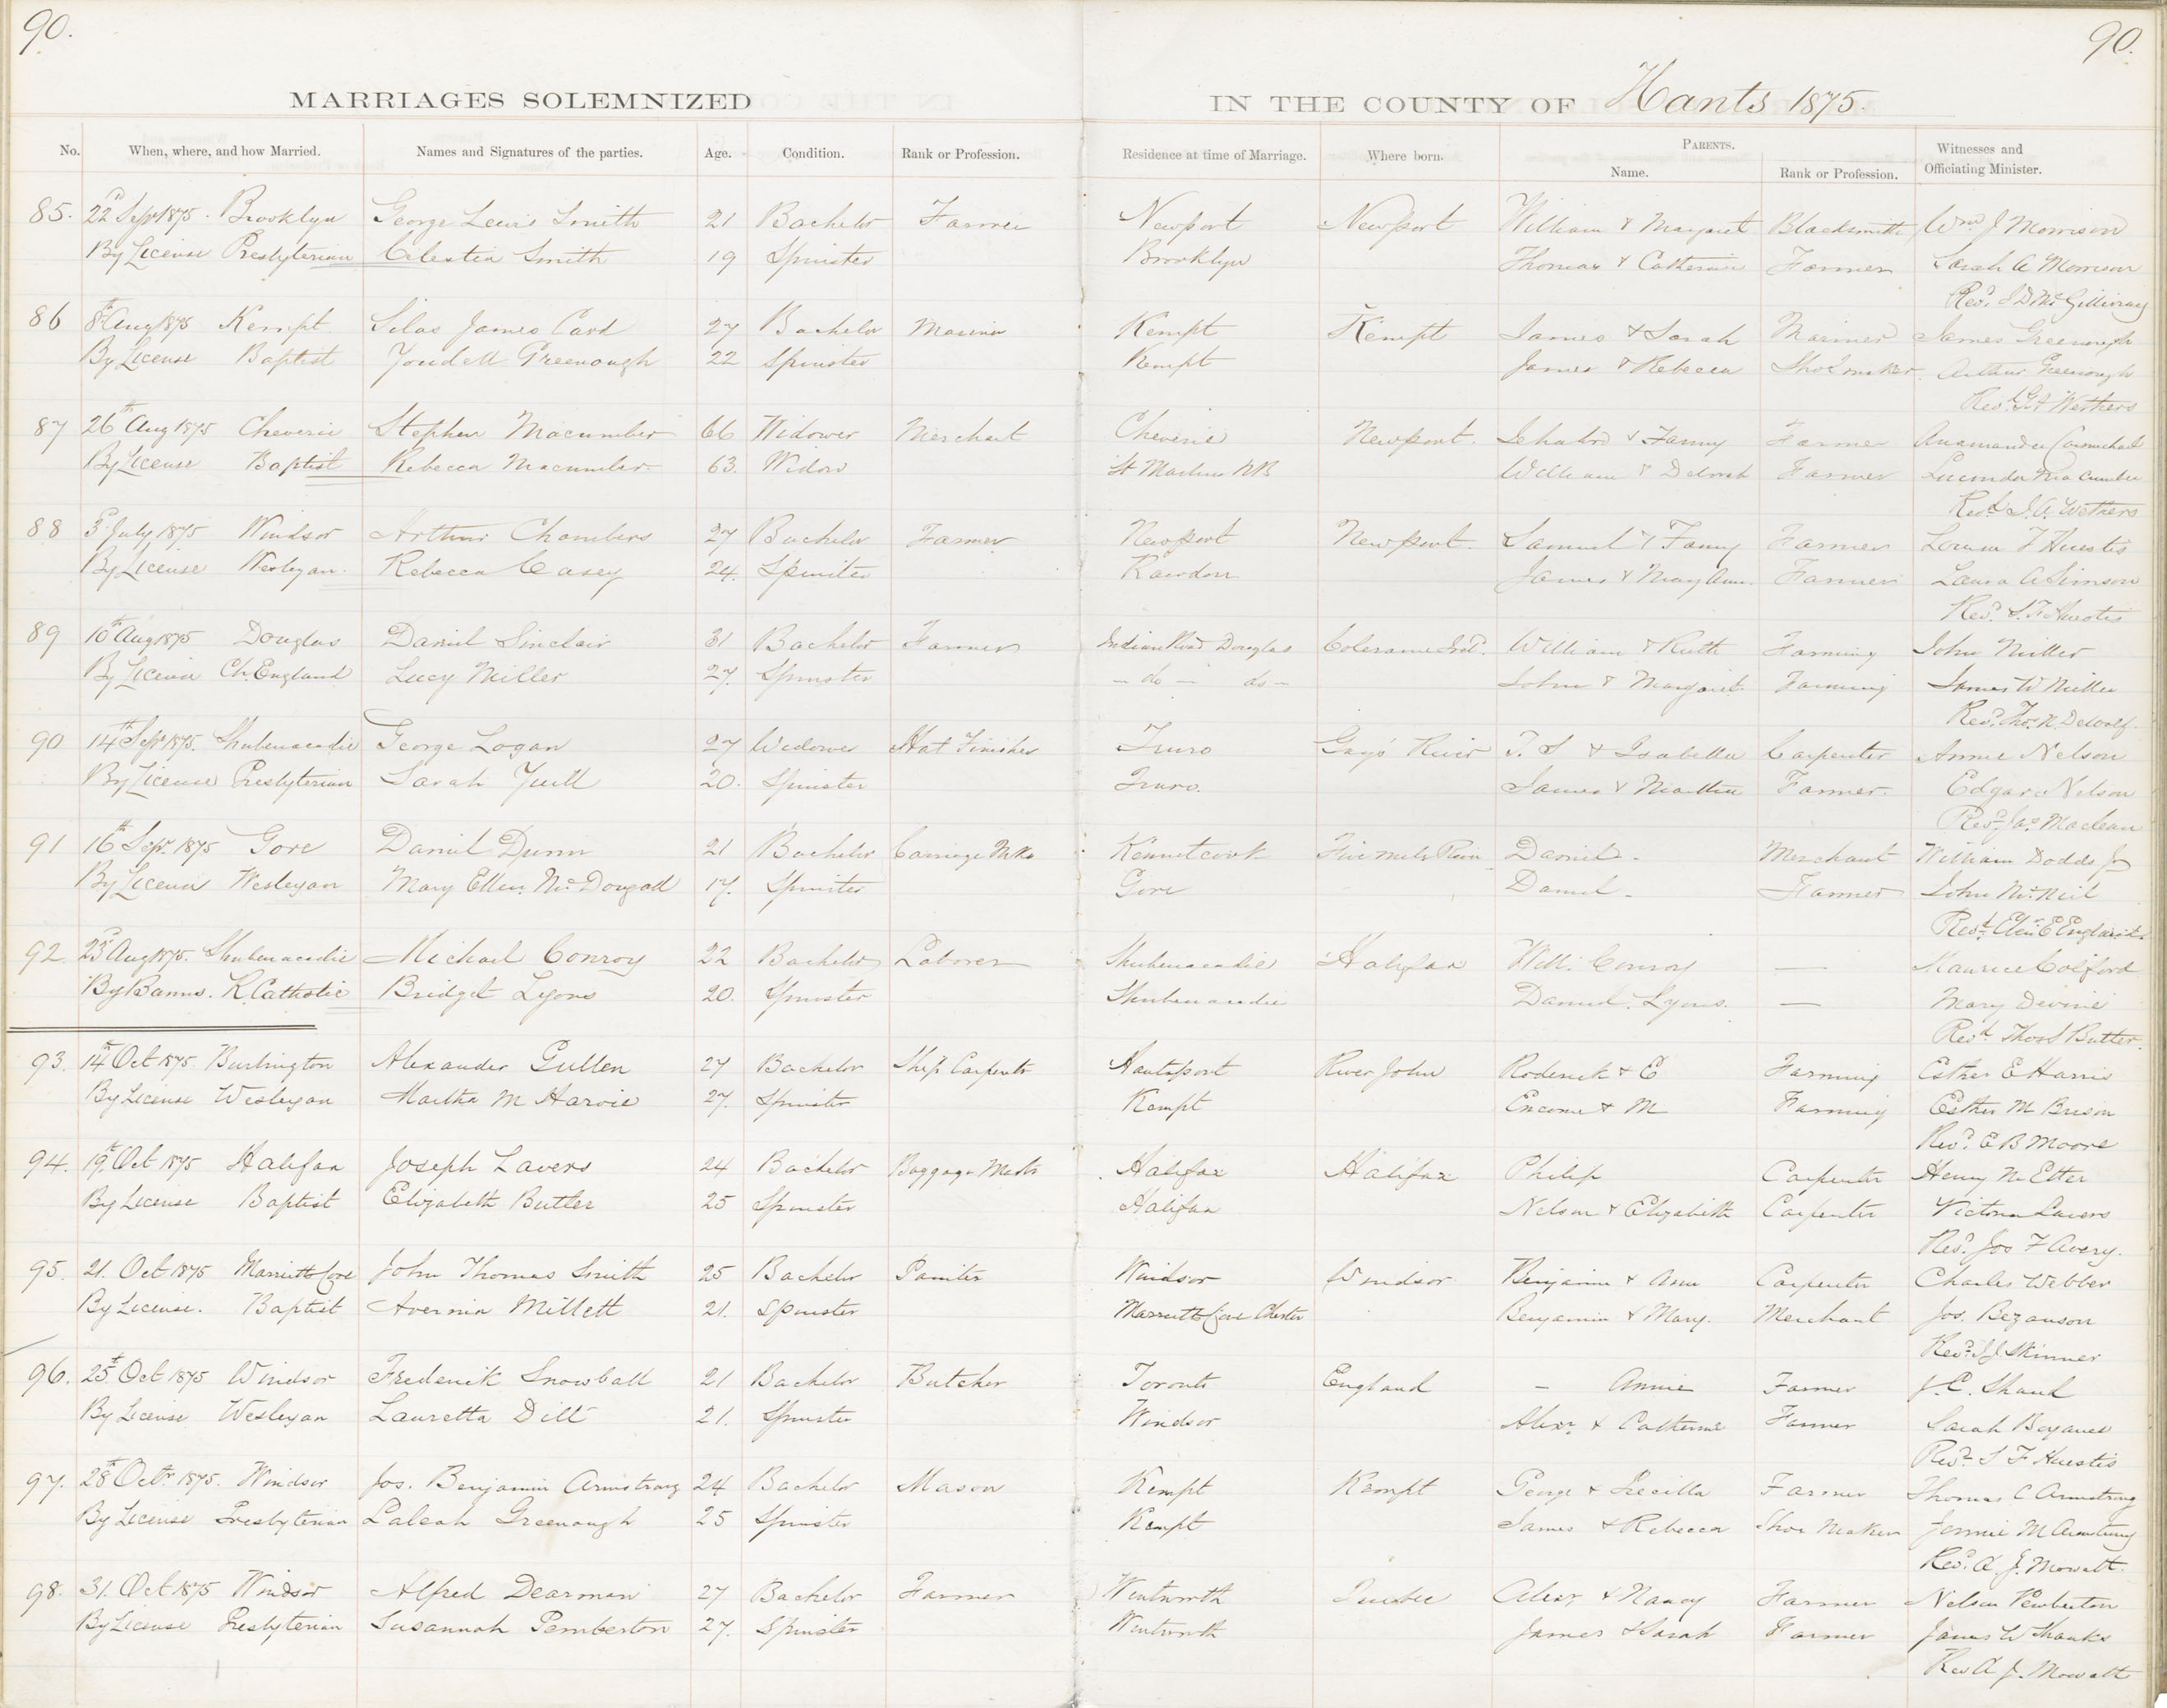 90. 90.
MARRIAGES SOLEMNIZED IN THE COUNTY OF Hants 1875.
No. When, where, and how Married. Names and Signatures of the parties. Age. Condition. Rank or Profession. Residence at time of Marriage. Where born. PARENTS. Name. Rank or Profession. Witnesses and Officiating Minister.
85. 22d Sept 1875. Brooklyn George Lewis Smith 21 Bachelor Farmer Newport Newport William & Margaret Blacksmith Wm J Morrison
By License Presbyterian Celestia Smith 19 Spinster Brooklyn Thomas & Catherine Farmer Sarah A Morrison
Revd J D McGillivray
86 8th Aug 1875 Kempt Silas James Card 27 Bachelor Marinr Kempt Kempt James & Sarah Mariner James Greenough
By License Baptist Youdell Greenough 22 Spinster Kempt James & Rebecca Shoemaker Arthur Greenough
Revd Wethers
87 26th Aug 1875 Cheverie Stephen Macumber 66 Widower Merchant Cheverie Newport. Ichabd & Fanny Farmer Anamander Carmichael
By License Baptist Rebecca Macumber 63. Widow St Martins N.B. William & Deborah Farmer Lucinda Macumber
Revd J. A. Wethers
88 3d July 1875 Windsor Arthur Chambers 27 Bachelor Farmer Newport Newport. Samuel & Fanny Farmer Louisa F Huestis
By License Wesleyan. Rebecca Casey 24. Spinster Rawdon James & Mary Ann Farmer Laura A Simson
Revd S. F. Huestis
89 10th Aug 1875 Douglas Daniel Sinclair 31 Bachelor Farmer Indian Road Douglas Colerame Ireld. William & Ruth Farming John Miller
By License Ch. England Lucy Miller 27. Spinster - do - do - John & Margaret Farming James W Miller
Revd Thos N. Dewolf
90 14th Sept 1875. Shubenacadie George Logan 27 Widower Hat Finisher Truro Gays River T. S & Isabella Carpenter Annie Nelson
By License Presbyterian Sarah Yuill 20. Spinster Truro. James & Martha Farmer. Edgar Nelson
Revd Jas Maclean
91 16th Sepr. 1875 Gore Daniel Dunn 21 Bachelor Carriage Mkr Kennetcook Five mile River Daniel - Merchant William Dodds Jr
By License Wesleyan Mary Ellen McDougall 17. Spinster Gore Daniel - Farmer John McNeil
Revd E England
92. 23d Aug 1875. Shubenacadie Michael Conroy 22 Bachelor Laborer Shubenacadie Halifax Will. Conroy — Maurice Colford
By Banns. R. Catholic Bridget Lyons 20. Spinster Shubenacadie Daniel Lyons. — Mary Devine
Revd Thos J Butler.
93. 14th Oct 1875. Burlington Alexander Gullen 27 Bachelor Ship Carpenter Hantsport River John Roderick & E Farming Esther E Harris
By License Wesleyan Martha M Harvie 27. Spinster Kempt Encome & M Farming Esther M Brison
Revd E B Moore
94. 19th Oct 1875 Halifax Joseph Lavers 24 Bachelor Baggage Mastr Halifax Halifax Philip Carpenter Henry N Etter
By License Baptist Elizabeth Butler 25 Spinster Halifax Nelson & Elizabeth Carpenter Victoria Lavers
Revd. Jos F Avery.
95. 21. Oct 1875 Marriotts Cove John Thomas Smith 25 Bachelor Painter Windsor Windsor Benjamin & Ann Carpenter Charles Webber
By License. Baptist Avernia Millett 21. Spinster Marriotts Cove Chester Benjamin & Mary. Merchant Jos. Bezanson
Revd I J Skinner
96. 25th Oct 1875 Windsor Frederick Snowball 21 Bachelor Butcher Toronto England - Annie Farmer J. C. Shand
By License Wesleyan Lauretta Dill 21. Spinster Windsor Alexr. & Catherine Farmer Sarah
Revd. S F Huestis
97. 28th Octr 1875. Windsor Jos. Benjamin Armstrong 24 Bachelor Mason Kempt Kempt George & Precilla Farmer Thomas C Armstrong
By License Presbyterian Paleah Greenough 25 Spinster Kempt James & Rebecca Shoe Maker Jennie M Armstrong
Revd. A. J. Mowatt.
98. 31. Oct 1875 Windsor Alfred Dearman 27 Bachelor Farmer Wentworth Quebec Alexr & Nancy Farmer Nelson Pemberton
By License Presbyterian Susannah Pemberton 27. Spinster Wentworth James & Sarah Farmer James W Shanks
Rev A J. Mowatt